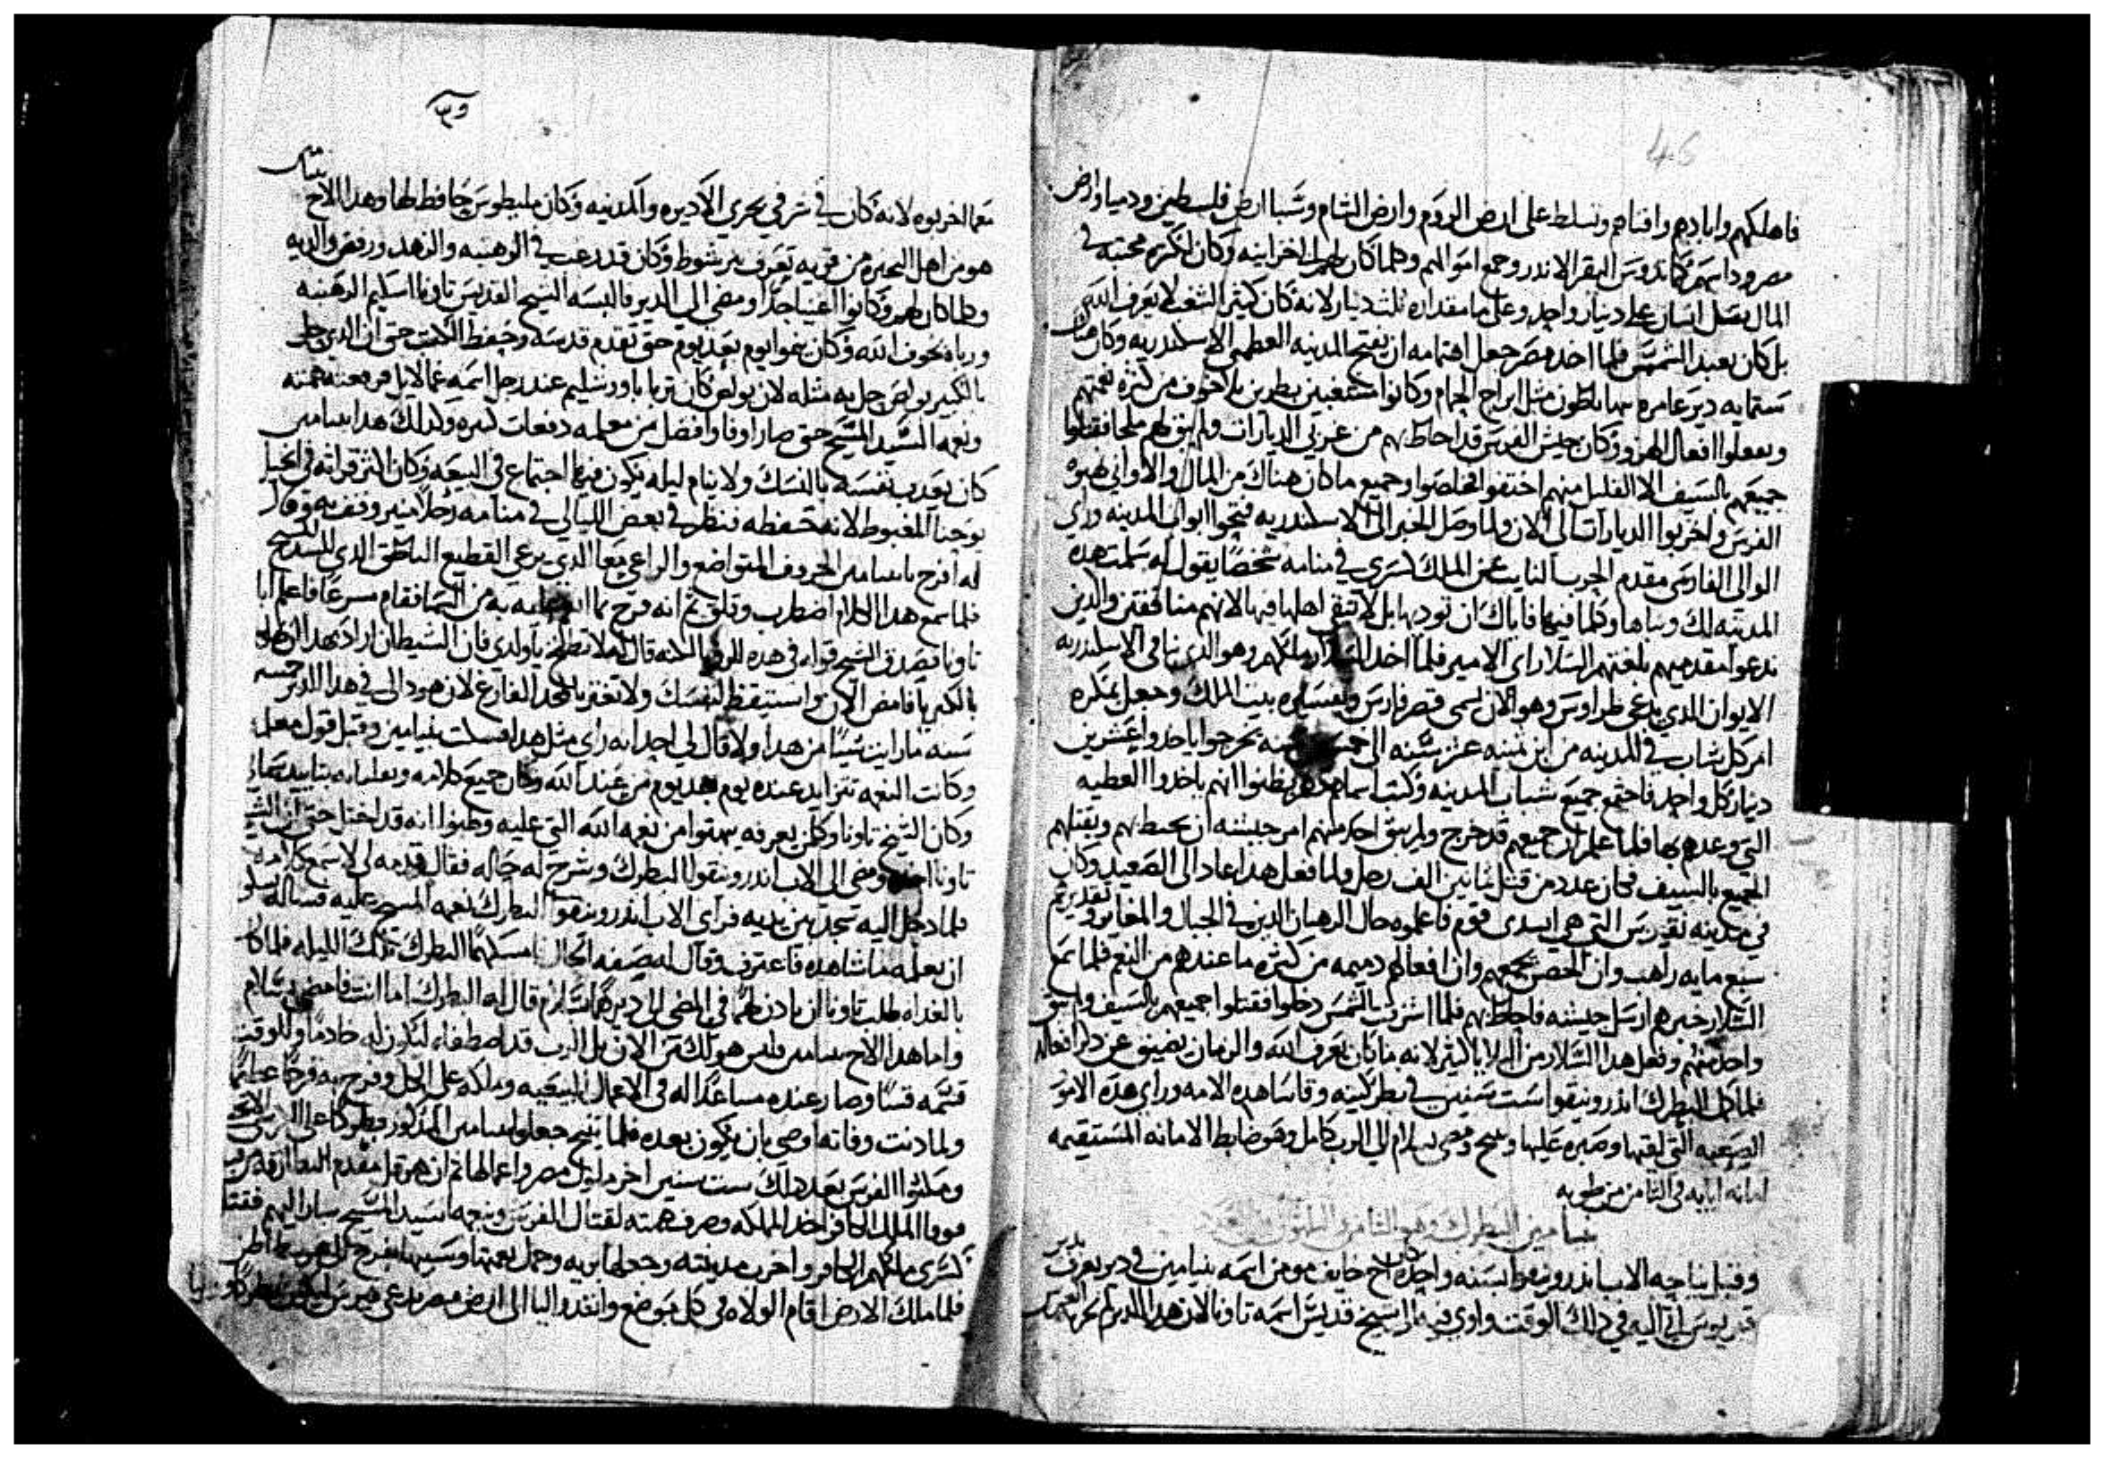 46
فاهلكهم وابادهم وافناهم وتسلط على ارض الروم وارض الشام وسبا ارض فلسطين ودميا وارض
مصر وداسهم كاندروس البقر الاندر وجمع اموالهم وكلما كان لهم الخزاينه وكان لكثره محبته في
المال يقتل انسان على دينار واحد وعلى ما مقداره ثلث دينار لانه كان كثير الشغب لا يعرف الله
بل كان يعبد الشمس فلما اخد مصر جعل اهتمامه ان يفتح المدينه العظمى الاسكندريه وكان هناك
ستمايه دير عامره بها بلطون مثل ابراج الحمام وكانوا متعبين بطرين بلا خوف من كثره نعمتهم
ويعملوا افعال الهزو وكان جيش الفرس قد احاط بهم من غربي الديارات ولم يبق لهم ملجا فقتلوا
جميعهم بالسيف الا القليل منهم اختفوا فخلصوا وجميع ما كان هناك من المال والاواني نهبوه
الفرس واخربوا الديارات الى الان ولما وصل الخبر الى الاسكندريه فتحوا ابواب المدينه وراي
الوالي الفارسي مقدم الحرب النايب عن الملك كسرى في منامه شخصا يقول له سلمت هده
المدينه لك وبناها وكلما فيها فاياك ان تودبها بل لا تبقي اهلها فيها لانهم منافقين والدين
ندعوا مقدميهم بلغتهم السلار اي الامير فلما اخد السلار ملكهم وهو الدي بنا في الاسكندريه
الايوان الدي يدعى طراوس وهو الان يسمى قصر فارس وتفسيره بيت الملك وجعل بمكره
امر كل شاب في المدينه من ابن ثمنيه عشر سنه الى خمسين سنه يخرجوا ياخدوا عشرين
دينار كل واحد فاجتمع جميع شباب المدينه وكتب اسماهم يظنوا انهم ياخدوا العطيه
التي وعدهم بها فلما علم ان جميعهم قد خرج ولم يبق احد منهم امر جيشه ان يحيط بهم ويقتلهم
الجميع بالسيف فكان عدد من قتل ثمانين الف رجل ولما فعل هدا عاد الى الصعيد وكان
في مدينه نقيوس التي هي ابسدى قوم فاعلموه حال الرهبان الدين في الجبال والمغاير وتقديرهم
سبع مايه راهب وان الحصن يجمعهم وان افعالهم دميمه من كثره ما عندهم من النعم فلما سمع
السلار خبرهم ارسل جيشه فاحاط بهم فلما اشرقت الشمس دخلوا فقتلوا جميعهم بالسيف ولم يبق
واحد منهم وفعل هدا السلار من البلايا كثير لانه ما كان يعرف الله والزمان يضيق عن دكر افعاله
فلما كمل البطرك اندرونيقوا ست سنين في بطركيته وقاسا هده الامه وراى هده الامور
الصعبه التي لقيها وصبره عليها وتنيح ومضى بسلام الى الرب كامل وهو ضابط الامانه المستقيمه
امانه ابايه في الثامن من طوبه
بنيامين البطرك وهو الثامن والثلثون من العدد
وقبل نياحه الاب اندرونيقوا بسنه واحده كان اخ خايف مومن اسمه بنيامين في دير يعرف بدير
قنريوس اتى اليه في دلك الوقت واوى فيه الى شيخ قديس اسمه تاونا لان هدا الدير لم تخربه الفرس
معما اخربوه لانه كان في شرقي بحري الاديره والمدينه وكان مليطوس حافظ لها وهدا الاخ بنيامين
هو من اهل البحيره من قريه تعرف ببرشوط وكان قد رغب في الرهبنه والزهد ورفض والديه
وكلما كان لهم وكانوا اغنيا جدا ومضى الى الدير فالبسه الشيخ القديس تاونا اسكيم الرهبنه
ورباه بخوف الله وكان ينموا يوم بعد يوم حتى تقدم قدسه وحفظ الكتب حتى ان الدين حل
بالكبير بولص حل به مثله لان بولص كان تربا باورشليم عند رجل اسمه غمالايل فرفعته همته
ونعمه السيد المسيح حتى صار اوفا وافضل من معلمه دفعات كتيره وكدلك هدا بنيامين
كان يعدب نفسه بالنسك ولا ينام ليله يكون فيها اجتماع في البيعه وكان اكثر قراته في انجيل
يوحنا المغبوط لانه حفظه فنظر في بعض الليالي في منامه رجلا منير وقف به وقال
له افرح يا بنيامين الخروف المتواضع والراعي معا الدي يرعى القطيع الناطق الدي للسيد المسيح
فلما سمع هدا الكلام اضطرب وقلق ثم انه فرح بما انعم عليه به من السما فقام مسرعا فاعلم ابا
تاونا فصدق الشيخ قوله في هده الرويا لكنه قال له لا تطلخ يا ولدي فان الشيطان اراد بهدا ان يعرقلك
بالكبريا فامض الان واستيقظ لنفسك ولا تغتر بالمجد الفارغ لان هودا لي في هدا الدير خمسين
سنه ما رايت شيا من هدا ولا قال لي احد انه راى مثل هدا فسكت بنيامين وقبل قول معلمه
وكانت النعمه تتزايد عنده يوم بعد يوم من عند الله وكان جميع كلامه وتعليمه بتاييد سماي
وكان الشيخ تاونا وكلمن يعرفه يبهتوا من نعمه الله التي عليه وظنوا انه قد اختل حتى ان الشيخ
تاونا اخده ومضى الى الاب اندرونيقوا البطرك وشرح له حاله فقال قدمه لي لاسمع كلامه
فلما دخل اليه سجد بين يديه فراى الاب اندرونيقوا البطرك نعمه المسيح عليه فساله
ان يعلمه ما شاهده فاعترف وقال له صفه الحال فامسكهما البطرك تلك الليله فلما كان
بالغداه طلب تاونا ان يادن لهما في المضي الى ديرهما بسلام قال له البطرك اما انت فامضي بسلام
واما هدا الاخ بنيامين فليس هو لك من الان بل الرب قد اصطفاه ليكون له خادما وللوقت
قسمه قسا وصار عنده مساعدا له في الاعمال البيعيه وملكه على الكل وفرح به فرحا عظيما
ولما دنت وفاته اوصى بان يكون بعده فلما تنيح جعلوا بنيامين المدكور بطركا على الكرسي الانجيلي
ومكثوا الفرس بعد دلك ست سنين اخر ملوك مصر واعمالها ثم ان هرقل مقدم
فوقا الملك الكافر اخد المملكه وصرف همته لقتال الفرس ونعمه السيد المسيح سار اليهم فقتل
كسرى ملكهم الكافر واخرب مدينته وجعلها بريه وحمل نعمتها وسبيها بفرح الى القسطنطينيه
فلما ملك الارض اقام الولاه في كل موضع وانفد والينا الى ارض مصر يدعى قيرس ليكون بطركا وواليا